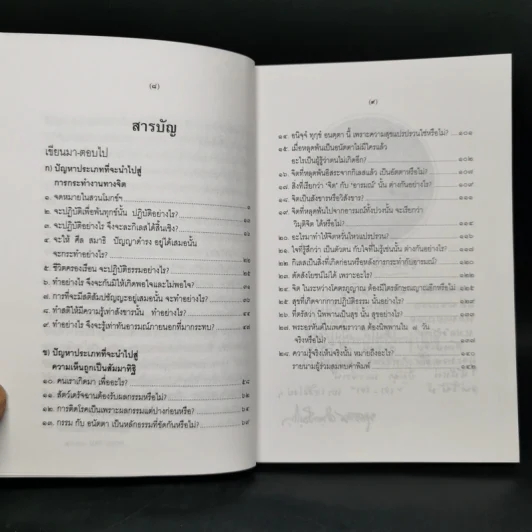 (๘)
สารบัญ
เขียนมา-ตอบไป
ก) ปัญหาประเภทที่จะนำไปสู่
การกระทำงานทางจิต
๑. จดหมายในสวนโมกข์ฯ ๑
๒. จะปฏิบัติเพื่อพ้นทุกข์นั้น ปฏิบัติอย่างไร?
๓. จะปฏิบัติอย่างไร จึงจะละกิเลสได้สิ้นเชิง?
๔. จะให้ ศีล สมาธิ ปัญญาดำรง อยู่ได้เสมอนั้น
จะกระทำอย่างไร?
๕. ชีวิตครองเรือน จะปฏิบัติธรรมอย่างไร?
๖. ทำอย่างไร จึงจะกันมิให้เกิดพอใจและไม่พอใจ?
๗. การที่จะมีสติสัมปชัญญะอยู่เสมอนั้น จะทำอย่างไร?
๘. ทำสติให้มีความรู้เท่าสังขารนั้น ทำอย่างไร?
๙. ทำอย่างไร จึงจะรู้เท่าทันอารมณ์ภายนอกที่มากระทบ?
ข) ปัญหาประเภทที่จะนำไปสู่
ความเห็นถูกเป็นสัมมาทิฐิ
๑๐. คนเราเกิดมา เพื่ออะไร? ๕๘
๑๑. สัตว์เดรัจฉานต้องรับผลกรรมหรือไม่? ๖๒
๑๒. การติดโรคเป็นเพราะผลกรรมแต่ปางก่อนหรือ? ๖๕
๑๓. กรรม กับ อนัตตา เป็นหลักธรรมที่ขัดกันหรือไม่? ๖๙
(๙)
๑๔. อนิจฺจํ ทุกฺขํ อนตฺตา นี้ เพราะความสุขแปรปรวนใช่หรือไม่? ๑๐๑
๑๕. เมื่อหลุดพ้นเป็นอนัตตาไม่มีใครแล้ว
อะไรเป็นผู้รู้ว่าตนไม่เกิดอีก? ๑๐๒
๑๖. จิตที่หลุดพ้นอิสระจากกิเลสแล้ว เป็นอัตตาหรือไม่?
๑๗. สิ่งที่เรียกว่า "จิต" กับ "อารมณ์" นั้น ต่างกันอย่างไร?
๑๘. จิตเป็นสังขารหรือวิสังขาร?
๑๙. จิตที่หลุดพ้นไปจากอารมณ์ทั้งปวงนั้น จะเรียกว่า
วิมุตติจิต ได้หรือไม่?
๒๐. อะไรมาทำให้จิตหวั่นไหวแปรปรวน?
๒๑. ใจที่รู้สึกว่า เป็นตัวตน กับใจที่ไม่รู้เช่นนั้น ต่างกันอย่างไร?
๒๒. กิเลสเป็นสิ่งที่เกิดก่อนหรือหลังการกระทำกับอารมณ์?
๒๓. ตัดสังโยชน์ไม่ได้ เพราะอะไร?
๒๔. จิต ในระหว่างโคตรภูญาณ ต้องมีไตรลักษณญาณอีกหรือไม่
๒๕. สุขที่เกิดจากการปฏิบัติธรรม นั้นอย่างไร?
๒๖. ที่ตรัสว่า นิพพานเป็นสุข นั้น สุขอย่างไร?
๒๗. พระอรหันต์ในเพศฆราวาส ต้องนิพพานใน ๗ วัน
จริงหรือไม่?
๒๘. ความรู้จริงเห็นจริงนั้น หมายถึงอะไร?
รายนามผู้ร่วมสมทบค่าพิมพ์